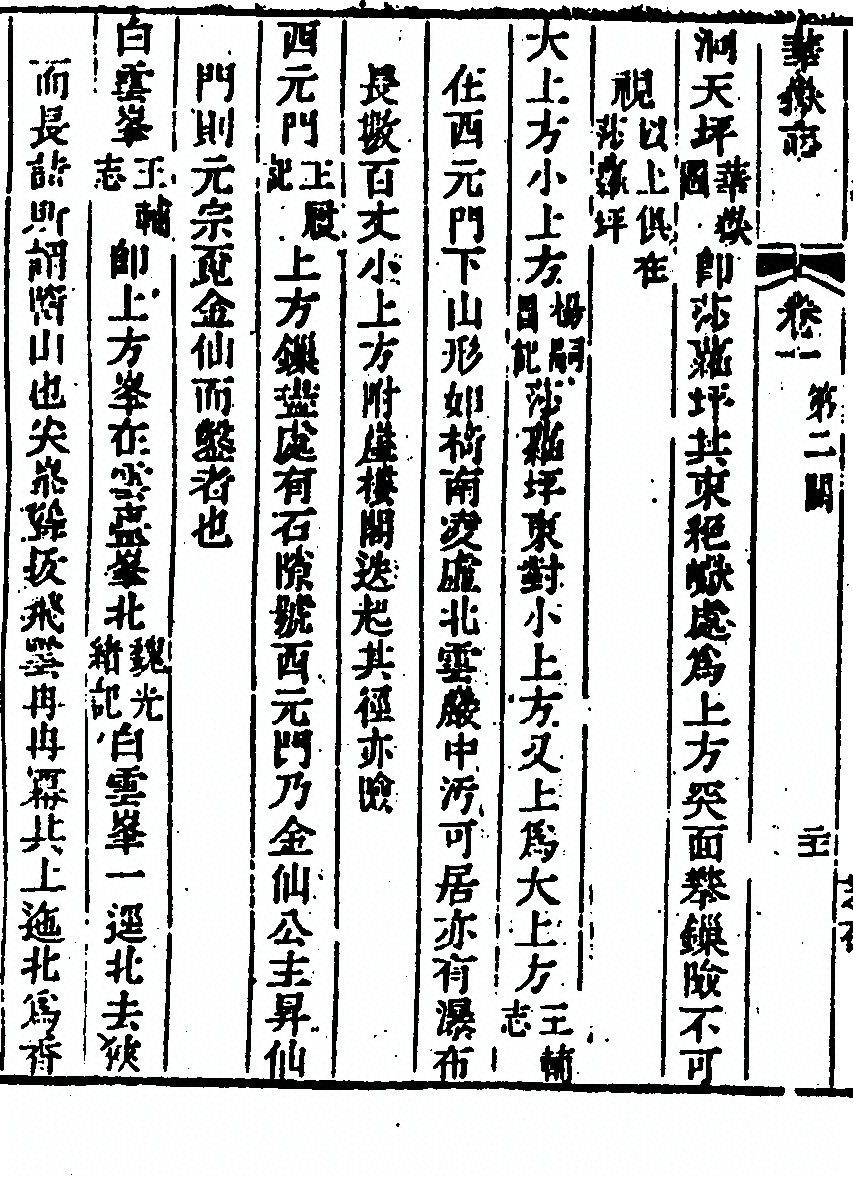 華嶽志 卷一 第二關 主
洞天坪華嶽圖卽莎蘿坪其東絕巘處爲上方突面攀鏁險不可
視以上俱在莎蘿坪
大上方小上方楊嗣昌記莎蘿坪東對小上方又上爲大上方王輔志
在西元門下山形如椅南凌虛北雲嚴中汚可居亦有瀑布
長數百丈小上方附崖樓閣迭起其徑亦險
西元門王履記上方鏁盡處有石隙號西元門乃金仙公主昇仙
門則元宗爲金仙而鑿者也
白雲峯王輔志卽上方峯在雲臺峯北魏光緒記白雲峯一逕北去狹
而長訝則謂隋山也尖崇孫拔飛雲冉冉冪其上迤北爲香